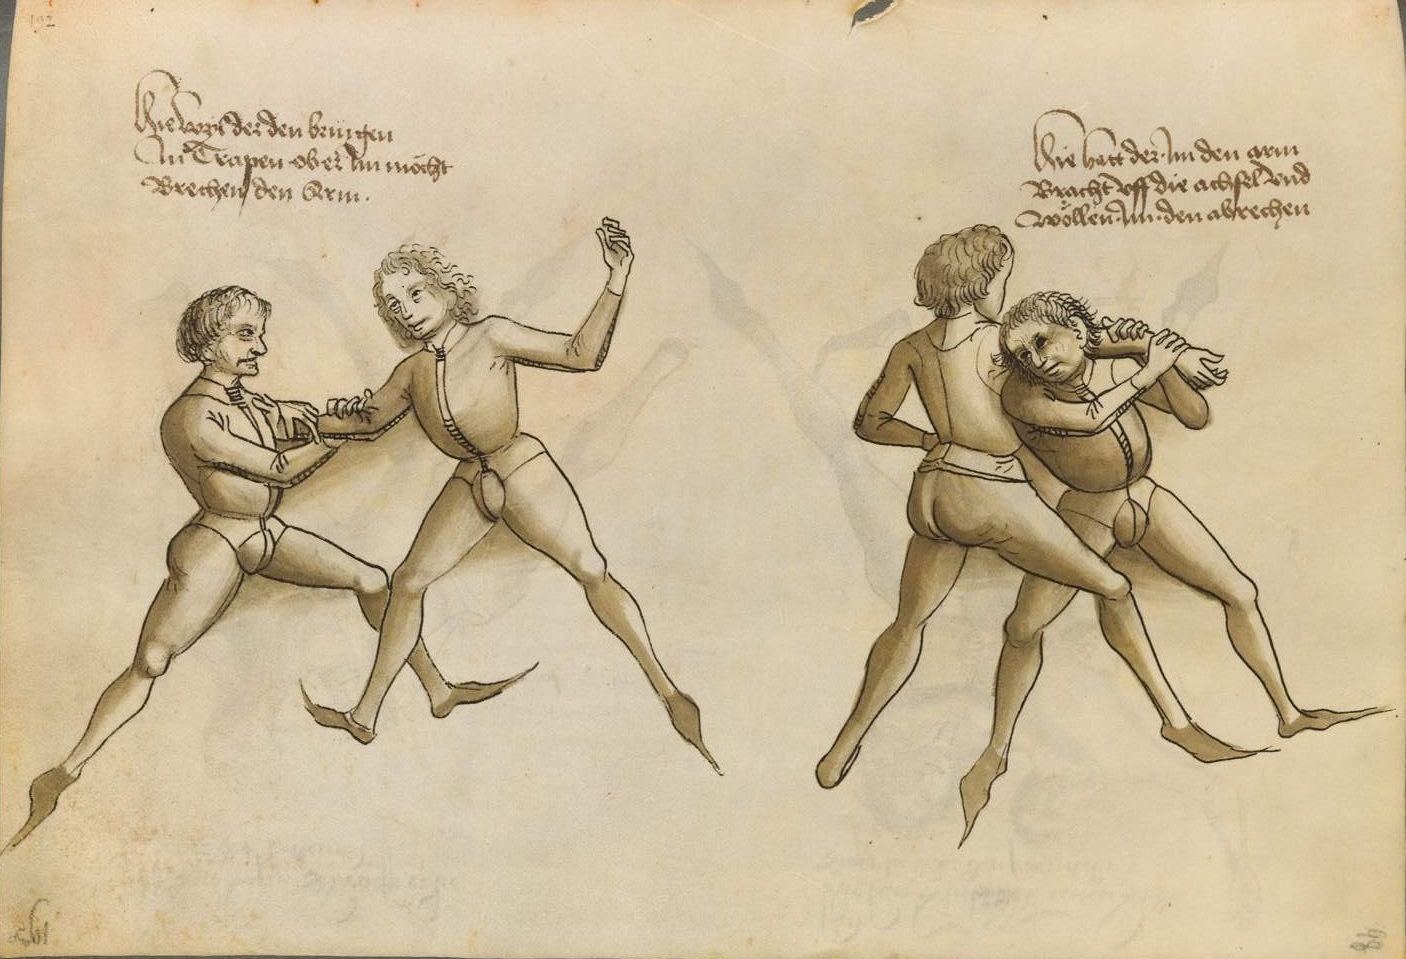 192
Hie wyl der den bringen
In Trapen ober Im möcht
Brechen den Arm.
Hie hatt der Im den arm
Bracht vff die achsel vnd
Wöllen Im den abrechen
98